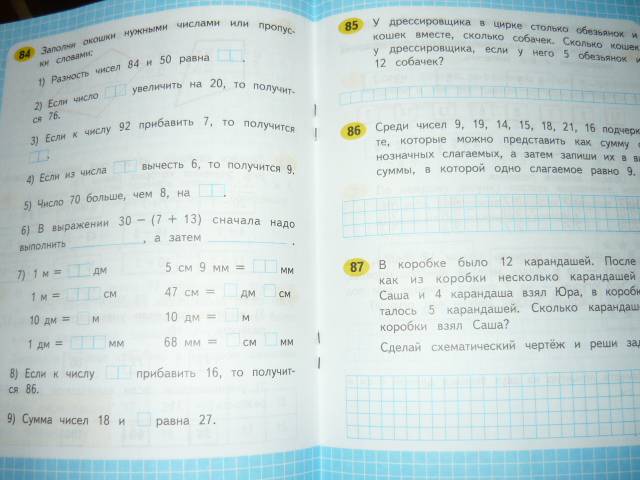 84 Заполни окошки нужными числами или пропус-
ки словами:
1) Разность чисел 84 и 50 равна .
2) Если число увеличить на 20, то получит-
ся 76.
3) Если к числу 92 прибавить 7, то получится
.
4) Если из числа вычесть 6, то получится 9.
5) Число 70 больше, чем 8, на .
6) В выражении 30 − (7 + 13) сначала надо
выполнить , а затем .
7) 1 м = дм 5 см 9 мм = мм
1 м = см 47 см = дм см
10 дм = м 10 дм = м
1 дм = мм 68 мм = см мм
8) Если к числу прибавить 16, то получит-
ся 86.
9) Сумма чисел 18 и равна 27.
85 У дрессировщика в цирке столько обезьянок и
кошек вместе, сколько собачек. Сколько кошек
у дрессировщика, если у него 5 обезьянок и
12 собачек?
86 Среди чисел 9, 19, 14, 15, 18, 21, 16
те, которые можно представить как сумму
нозначных слагаемых, а затем запиши их в
суммы, в которой одно слагаемое равно 9.
87 В коробке было 12 карандашей. После
как из коробки несколько карандашей
Саша и 4 карандаша взял Юра, в
талось 5 карандашей. Сколько
коробки взял Саша?
Сделай схематический чертёж и реши